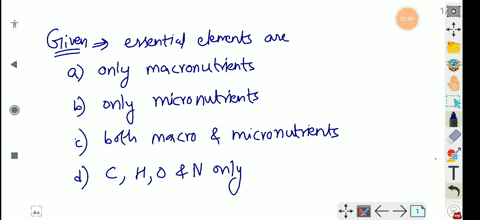 Given ⇒ essential elements are
a) only macronutrients
b) only micronutrients
c) both macro & micronutrients
d) C, H, O & N only